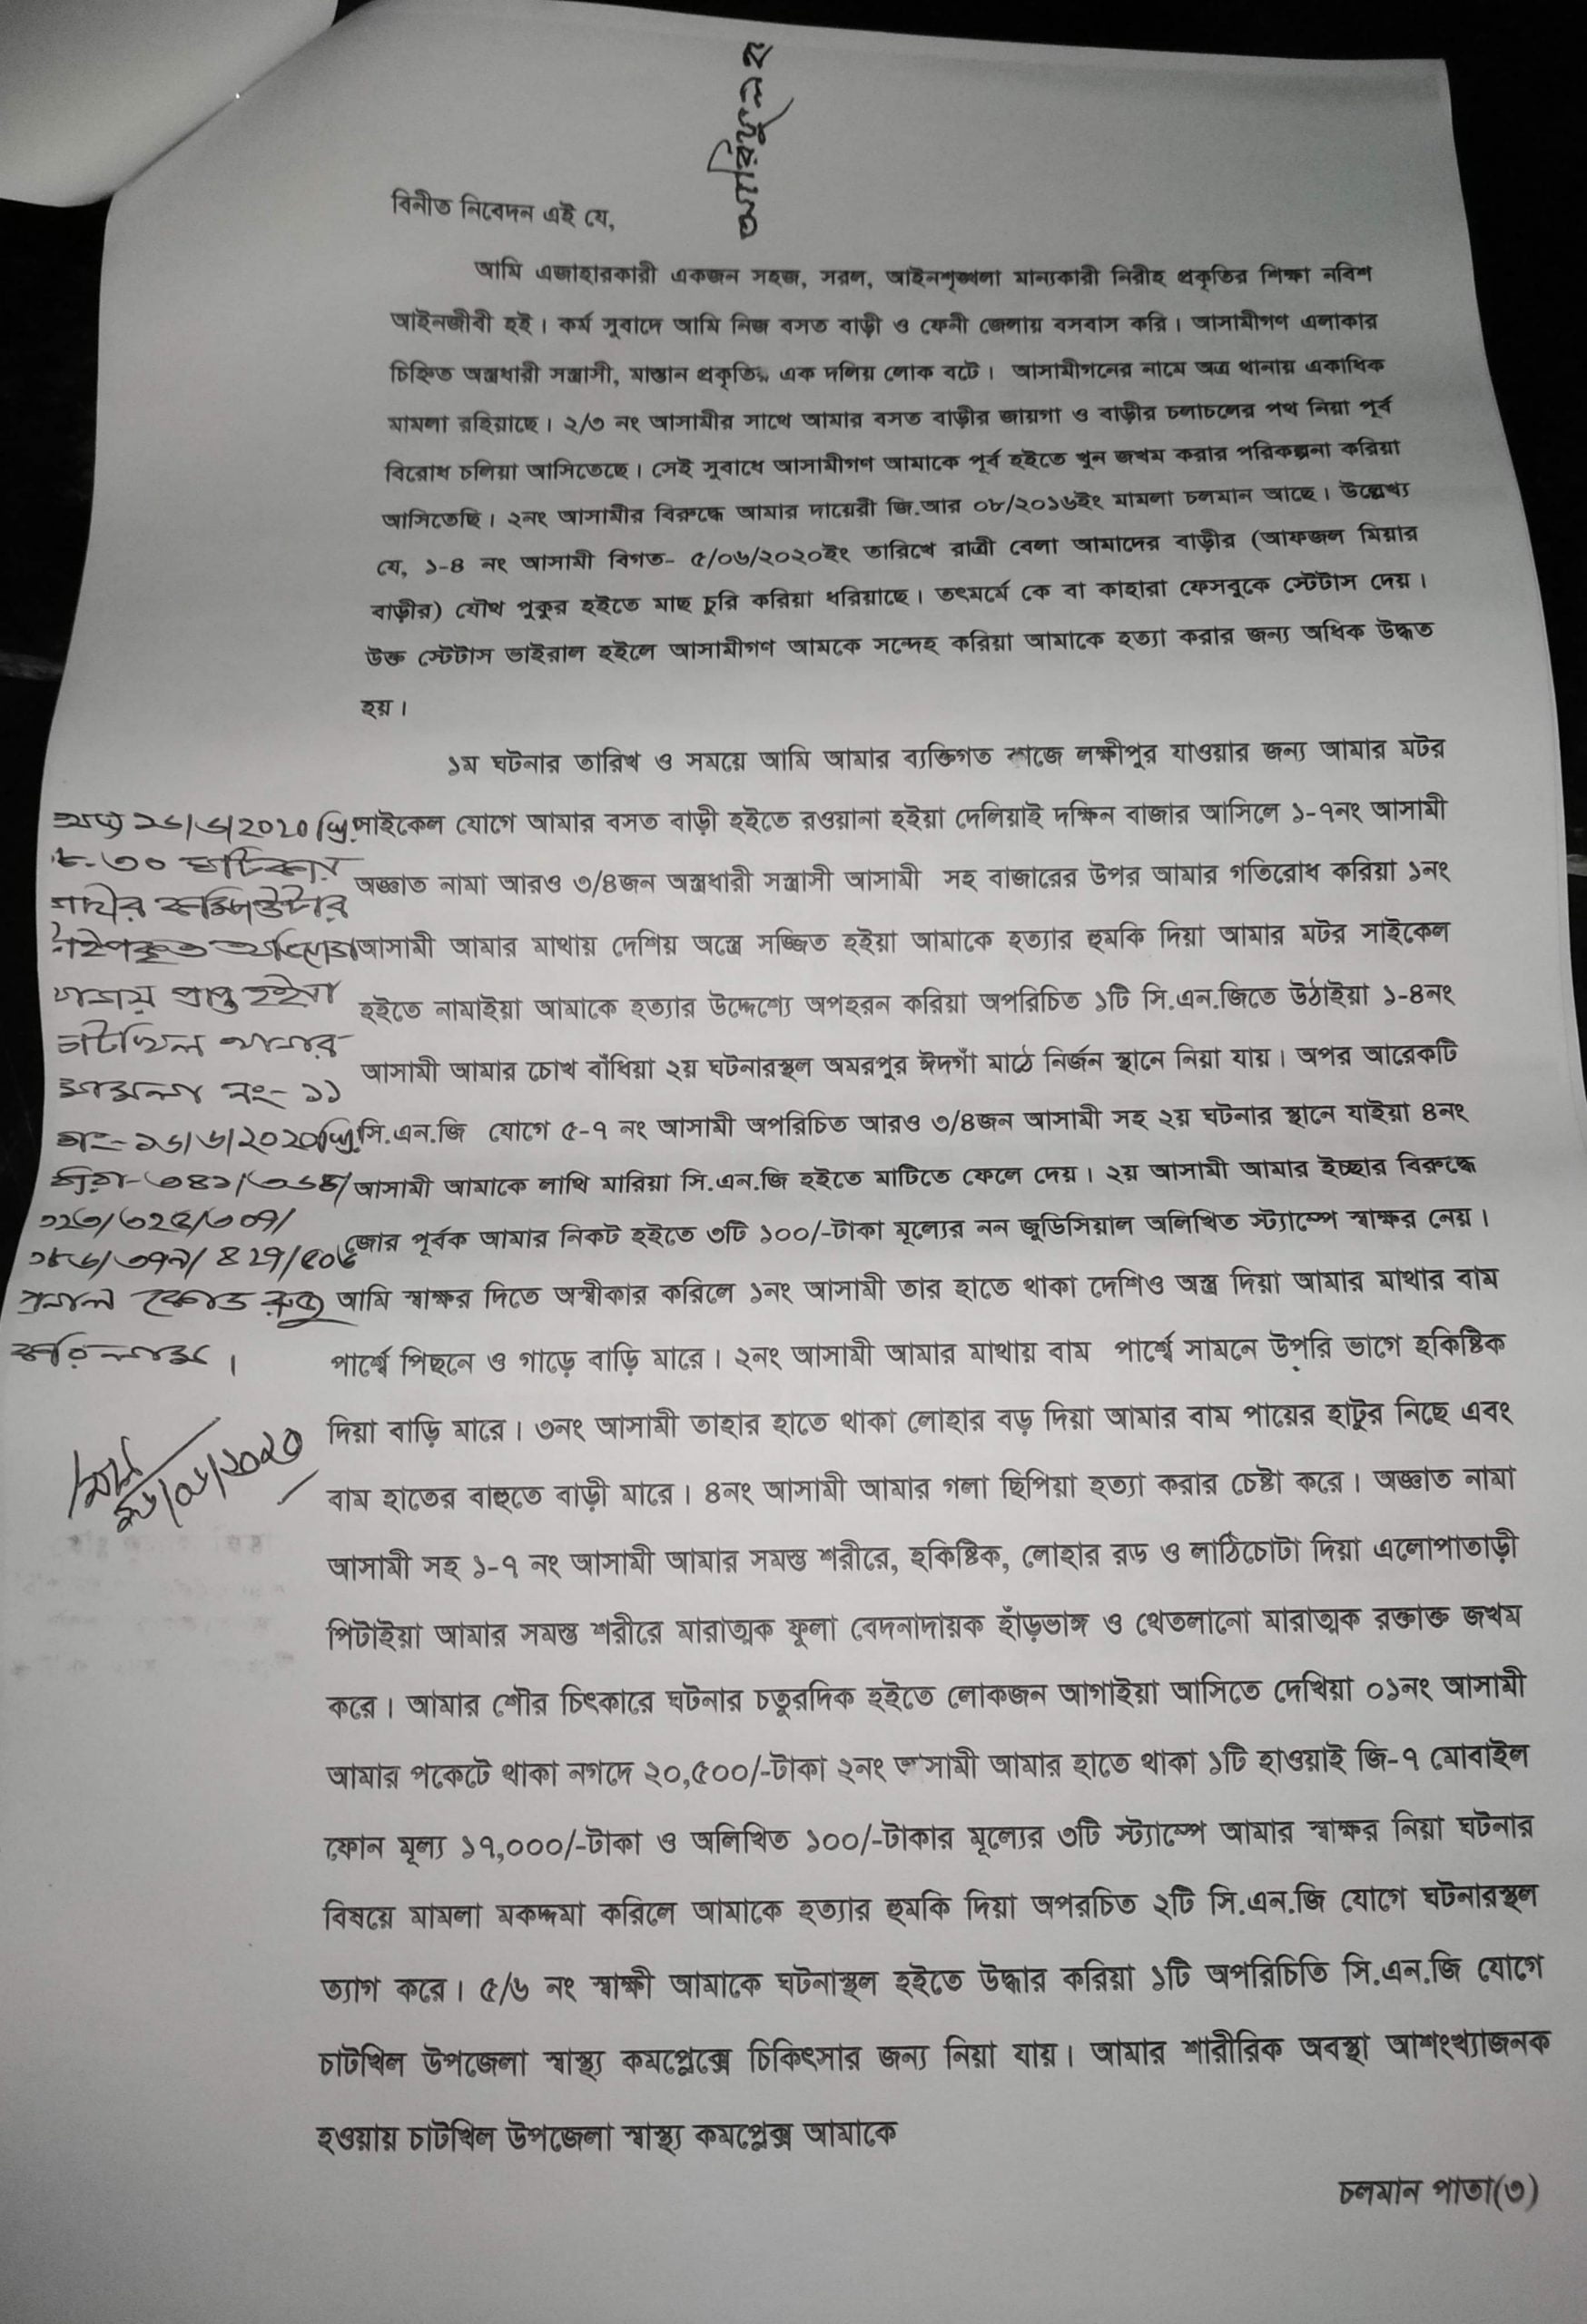 আরিফুর র
বিনীত নিবেদন এই যে,
আমি এজাহারকারী একজন সহজ, সরল, আইনশৃঙ্খলা মান্যকারী নিরীহ প্রকৃতির শিক্ষা নবিশ
আইনজীবী হই। কর্ম সুবাদে আমি নিজ বসত বাড়ী ও ফেনী জেলায় বসবাস করি। আসামীগণ এলাকার
চিহ্নিত অস্ত্রধারী সন্ত্রাসী, মাস্তান প্রকৃতির এক দলিয় লোক বটে। আসামীগনের নামে অত্র থানায় একাধিক
মামলা রহিয়াছে। ২/৩ নং আসামীর সাথে আমার বসত বাড়ীর জায়গা ও বাড়ীর চলাচলের পথ নিয়া পূর্ব
বিরোধ চলিয়া আসিতেছে। সেই সুবাধে আসামীগণ আমাকে পূর্ব হইতে খুন জখম করার পরিকল্পনা করিয়া
আসিতেছি। ২নং আসামীর বিরুদ্ধে আমার দায়েরী জি.আর ০৮/২০১৬ইং মামলা চলমান আছে। উল্লেখ্য
যে, ১-৪ নং আসামী বিগত- ৫/০৬/২০২০ইং তারিখে রাত্রী বেলা আমাদের বাড়ীর (আফজল মিয়ার
বাড়ীর) যৌথ পুকুর হইতে মাছ চুরি করিয়া ধরিয়াছে। তৎমর্মে কে বা কাহারা ফেসবুকে স্টেটাস দেয়।
উক্ত স্টেটাস ভাইরাল হইলে আসামীগণ আমকে সন্দেহ করিয়া আমাকে হত্যা করার জন্য অধিক উদ্ধত
হয়।
১ম ঘটনার তারিখ ও সময়ে আমি আমার ব্যক্তিগত কাজে লক্ষীপুর যাওয়ার জন্য আমার মটর
সাইকেল যোগে আমার বসত বাড়ী হইতে রওয়ানা হইয়া দেলিয়াই দক্ষিন বাজার আসিলে ১-৭নং আসামী
অজ্ঞাত নামা আরও ৩/৪জন অস্ত্রধারী সন্ত্রাসী আসামী সহ বাজারের উপর আমার গতিরোধ করিয়া ১নং
আসামী আমার মাথায় দেশিয় অস্ত্রে সজ্জিত হইয়া আমাকে হত্যার হুমকি দিয়া আমার মটর সাইকেল
হইতে নামাইয়া আমাকে হত্যার উদ্দেশ্যে অপহরন করিয়া অপরিচিত ১টি সি.এন.জিতে উঠাইয়া ১-৪নং
আসামী আমার চোখ বাঁধিয়া ২য় ঘটনারস্থল অমরপুর ঈদগাঁ মাঠে নির্জন স্থানে নিয়া যায়। অপর আরেকটি
সি.এন.জি যোগে ৫-৭ নং আসামী অপরিচিত আরও ৩/৪জন আসামী সহ ২য় ঘটনার স্থানে যাইয়া ৪নং
আসামী আমাকে লাথি মারিয়া সি.এন.জি হইতে মাটিতে ফেলে দেয়। ২য় আসামী আমার ইচ্ছার বিরুদ্ধে
জোর পূর্বক আমার নিকট হইতে ৩টি ১০০/-টাকা মূল্যের নন জুডিসিয়াল অলিখিত স্ট্যাম্পে স্বাক্ষর নেয়।
আমি স্বাক্ষর দিতে অস্বীকার করিলে ১নং আসামী তার হাতে থাকা দেশিও অস্ত্র দিয়া আমার মাথার বাম
পার্শ্বে পিছনে ও গাড়ে বাড়ি মারে। ২নং আসামী আমার মাথায় বাম পার্শ্বে সামনে উপরি ভাগে হকিষ্টিক
দিয়া বাড়ি মারে। ৩নং আসামী তাহার হাতে থাকা লোহার বড় দিয়া আমার বাম পায়ের হাটুর নিছে এবং
বাম হাতের বাহুতে বাড়ী মারে। ৪নং আসামী আমার গলা ছিপিয়া হত্যা করার চেষ্টা করে। অজ্ঞাত নামা
আসামী সহ ১-৭ নং আসামী আমার সমস্ত শরীরে, হকিষ্টিক, লোহার রড ও লাঠিচোটা দিয়া এলোপাতাড়ী
পিটাইয়া আমার সমস্ত শরীরে মারাত্মক ফুলা বেদনাদায়ক হাঁড়ভাঙ্গ ও থেতলানো মারাত্মক রক্তাক্ত জখম
করে। আমার শৌর চিৎকারে ঘটনার চতুরদিক হইতে লোকজন আগাইয়া আসিতে দেখিয়া ০১নং আসামী
আমার পকেটে থাকা নগদে ২০,৫০০/-টাকা ২নং আসামী আমার হাতে থাকা ১টি হাওয়াই জি-৭ মোবাইল
ফোন মূল্য ১৭,০০০/-টাকা ও অলিখিত ১০০/-টাকার মূল্যের ৩টি স্ট্যাম্পে আমার স্বাক্ষর নিয়া ঘটনার
বিষয়ে মামলা মকদ্দমা করিলে আমাকে হত্যার হুমকি দিয়া অপরচিত ২টি সি.এন.জি যোগে ঘটনারস্থল
ত্যাগ করে। ৫/৬ নং স্বাক্ষী আমাকে ঘটনাস্থল হইতে উদ্ধার করিয়া ১টি অপরিচিতি সি.এন.জি যোগে
চাটখিল উপজেলা স্বাস্থ্য কমপ্লেক্সে চিকিৎসার জন্য নিয়া যায়। আমার শারীরিক অবস্থা আশংখ্যাজনক
হওয়ায় চাটখিল উপজেলা স্বাস্থ্য কমপ্লেক্স আমাকে
চলমান পাতা(৩)
অদ্য ১৬/৬/2020 খ্রি:
৮-৩০ ঘটিকায়
বাদীর কম্পিউটার
টাইপকৃত অভিযোগ
থানায় প্রাপ্ত হইয়া
চাটখিল থানার
মামলা নং- ১১
তাং-১৬/৬/2020খ্রি:
ধারা-৩৪১/৩৬৪/
৩২৩/৩২৫/৩০৭/
৩৮৬/৩৭৯/৪২৭/৫০৬
পেনাল কোড রুজু
করিলাম।
১৬/০৬/২০২০